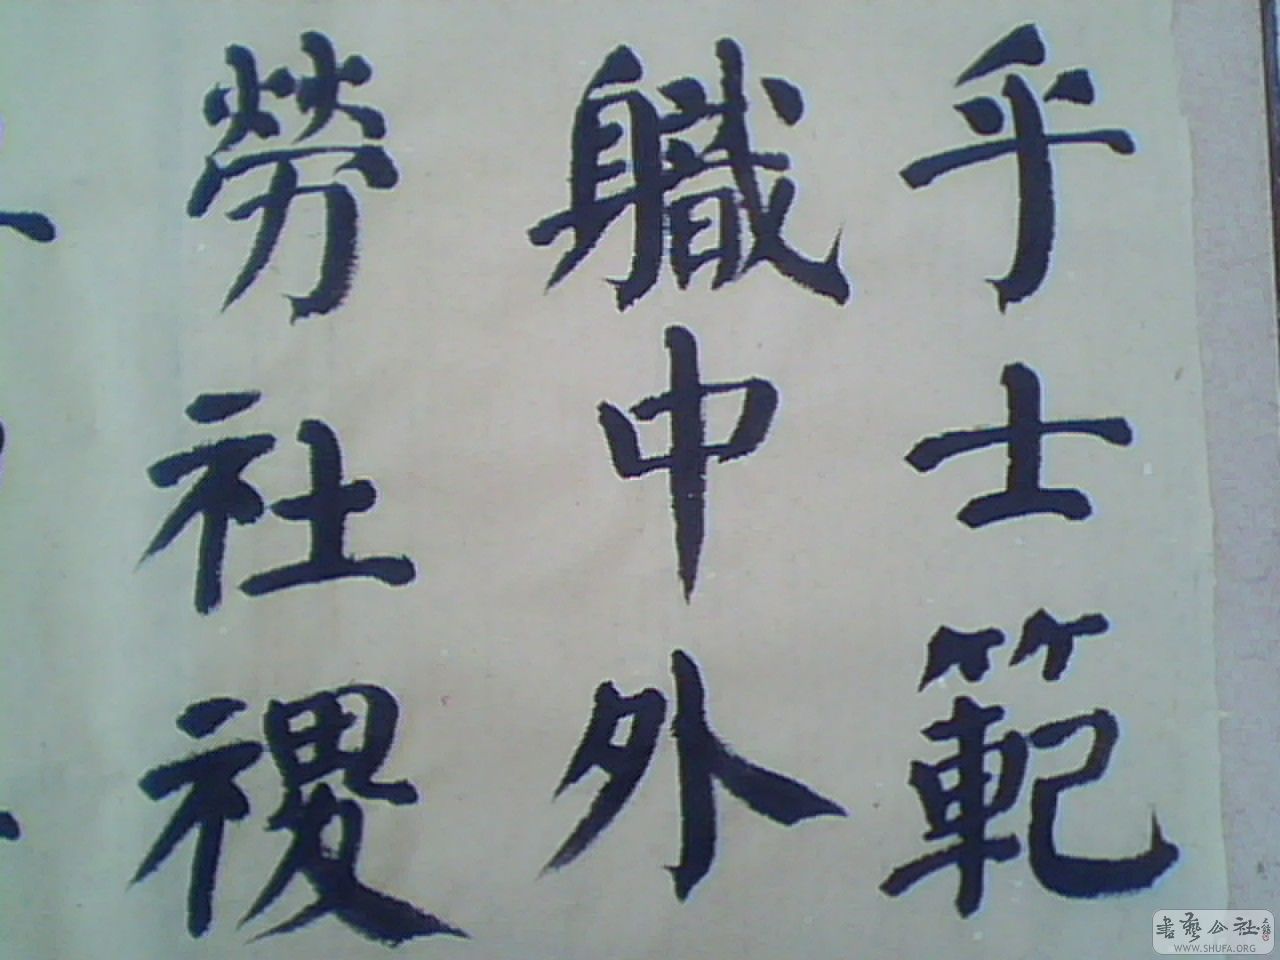 乎士範
軄中外
勞社禝
書藝公社
WWW.SHUFA.ORG